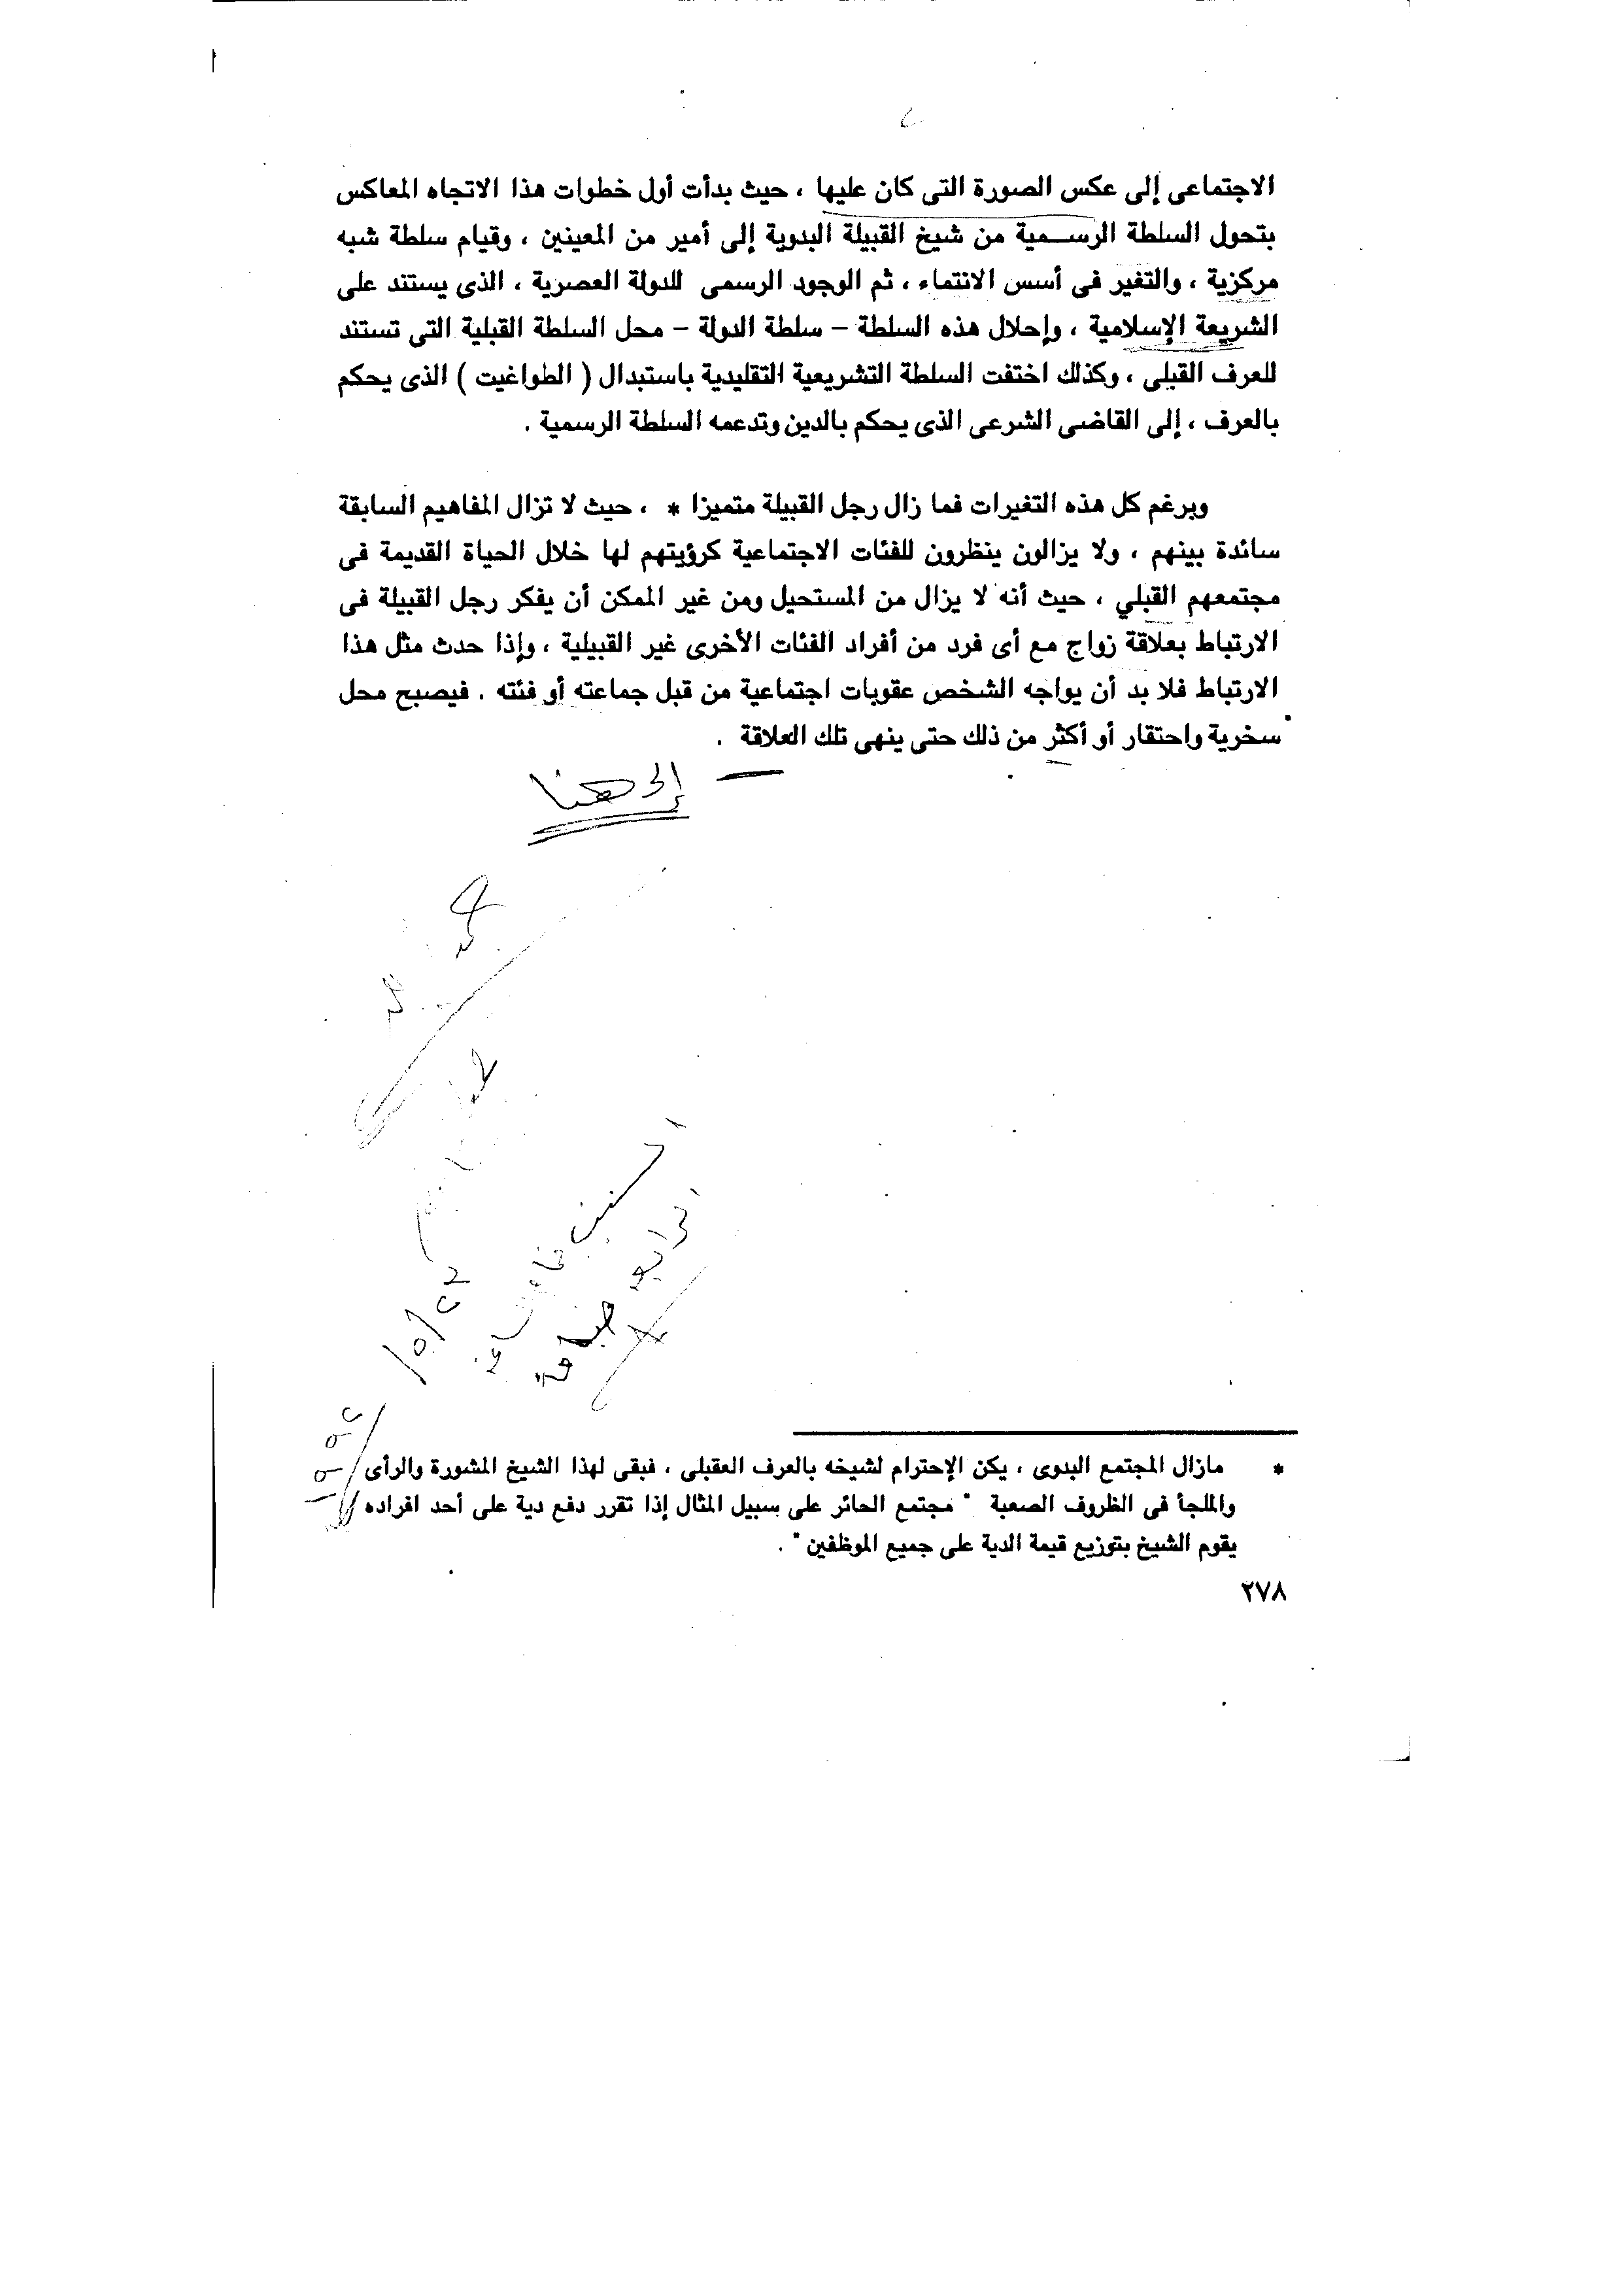 الاجتماعى إلى عكس الصورة التى كان عليها ، حيث بدأت أول خطوات هذا الاتجاه المعاكس
بتحول السلطة الرسـمية من شيخ القبيلة البدوية إلى أمير من المعينين ، وقيام سلطة شبه
مركزية ، والتغير فى أسس الانتماء ، ثم الوجود الرسمى للدولة العصرية ، الذى يستند على
الشريعة الإسلامية ، وإحلال هذه السلطة – سلطة الدولة – محل السلطة القبلية التى تستند
للعرف القبلى ، وكذلك اختفت السلطة التشريعية التقليدية باستبدال ( الطواغيت ) الذى يحكم
بالعرف ، إلى القاضى الشرعى الذى يحكم بالدين وتدعمه السلطة الرسمية .
وبرغم كل هذه التغيرات فما زال رجل القبيلة متميزا * ، حيث لا تزال المفاهيم السابقة
سائدة بينهم ، ولا يزالون ينظرون للفئات الاجتماعية كرؤيتهم لها خلال الحياة القديمة فى
مجتمعهم القبلي ، حيث أنه لا يزال من المستحيل ومن غير الممكن أن يفكر رجل القبيلة فى
الارتباط بعلاقة زواج مع أى فرد من أفراد الفئات الأخرى غير القبيلية ، وإذا حدث مثل هذا
الارتباط فلا بد أن يواجه الشخص عقوبات اجتماعية من قبل جماعته أو فئته . فيصبح محل
سخرية واحتقار أو أكثر من ذلك حتى ينهى تلك العلاقة .
إلى هنا
* مازال المجتمع البدوى ، يكن الإحترام لشيخه بالعرف العقبلى ، فبقى لهذا الشيخ المشورة والرأى
والملجأ فى الظروف الصعبة " مجتمع الحائر على سبيل المثال إذا تقرر دفع دية على أحد افراده
يقوم الشيخ بتوزيع قيمة الدية على جميع الموظفين " .
٢٧٨